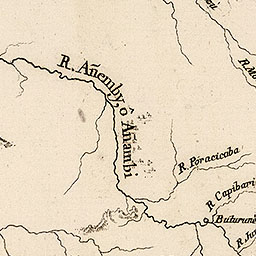 R. Añemby, ó Añambi
R. Poracicaba
R. Capibari
Buturuna